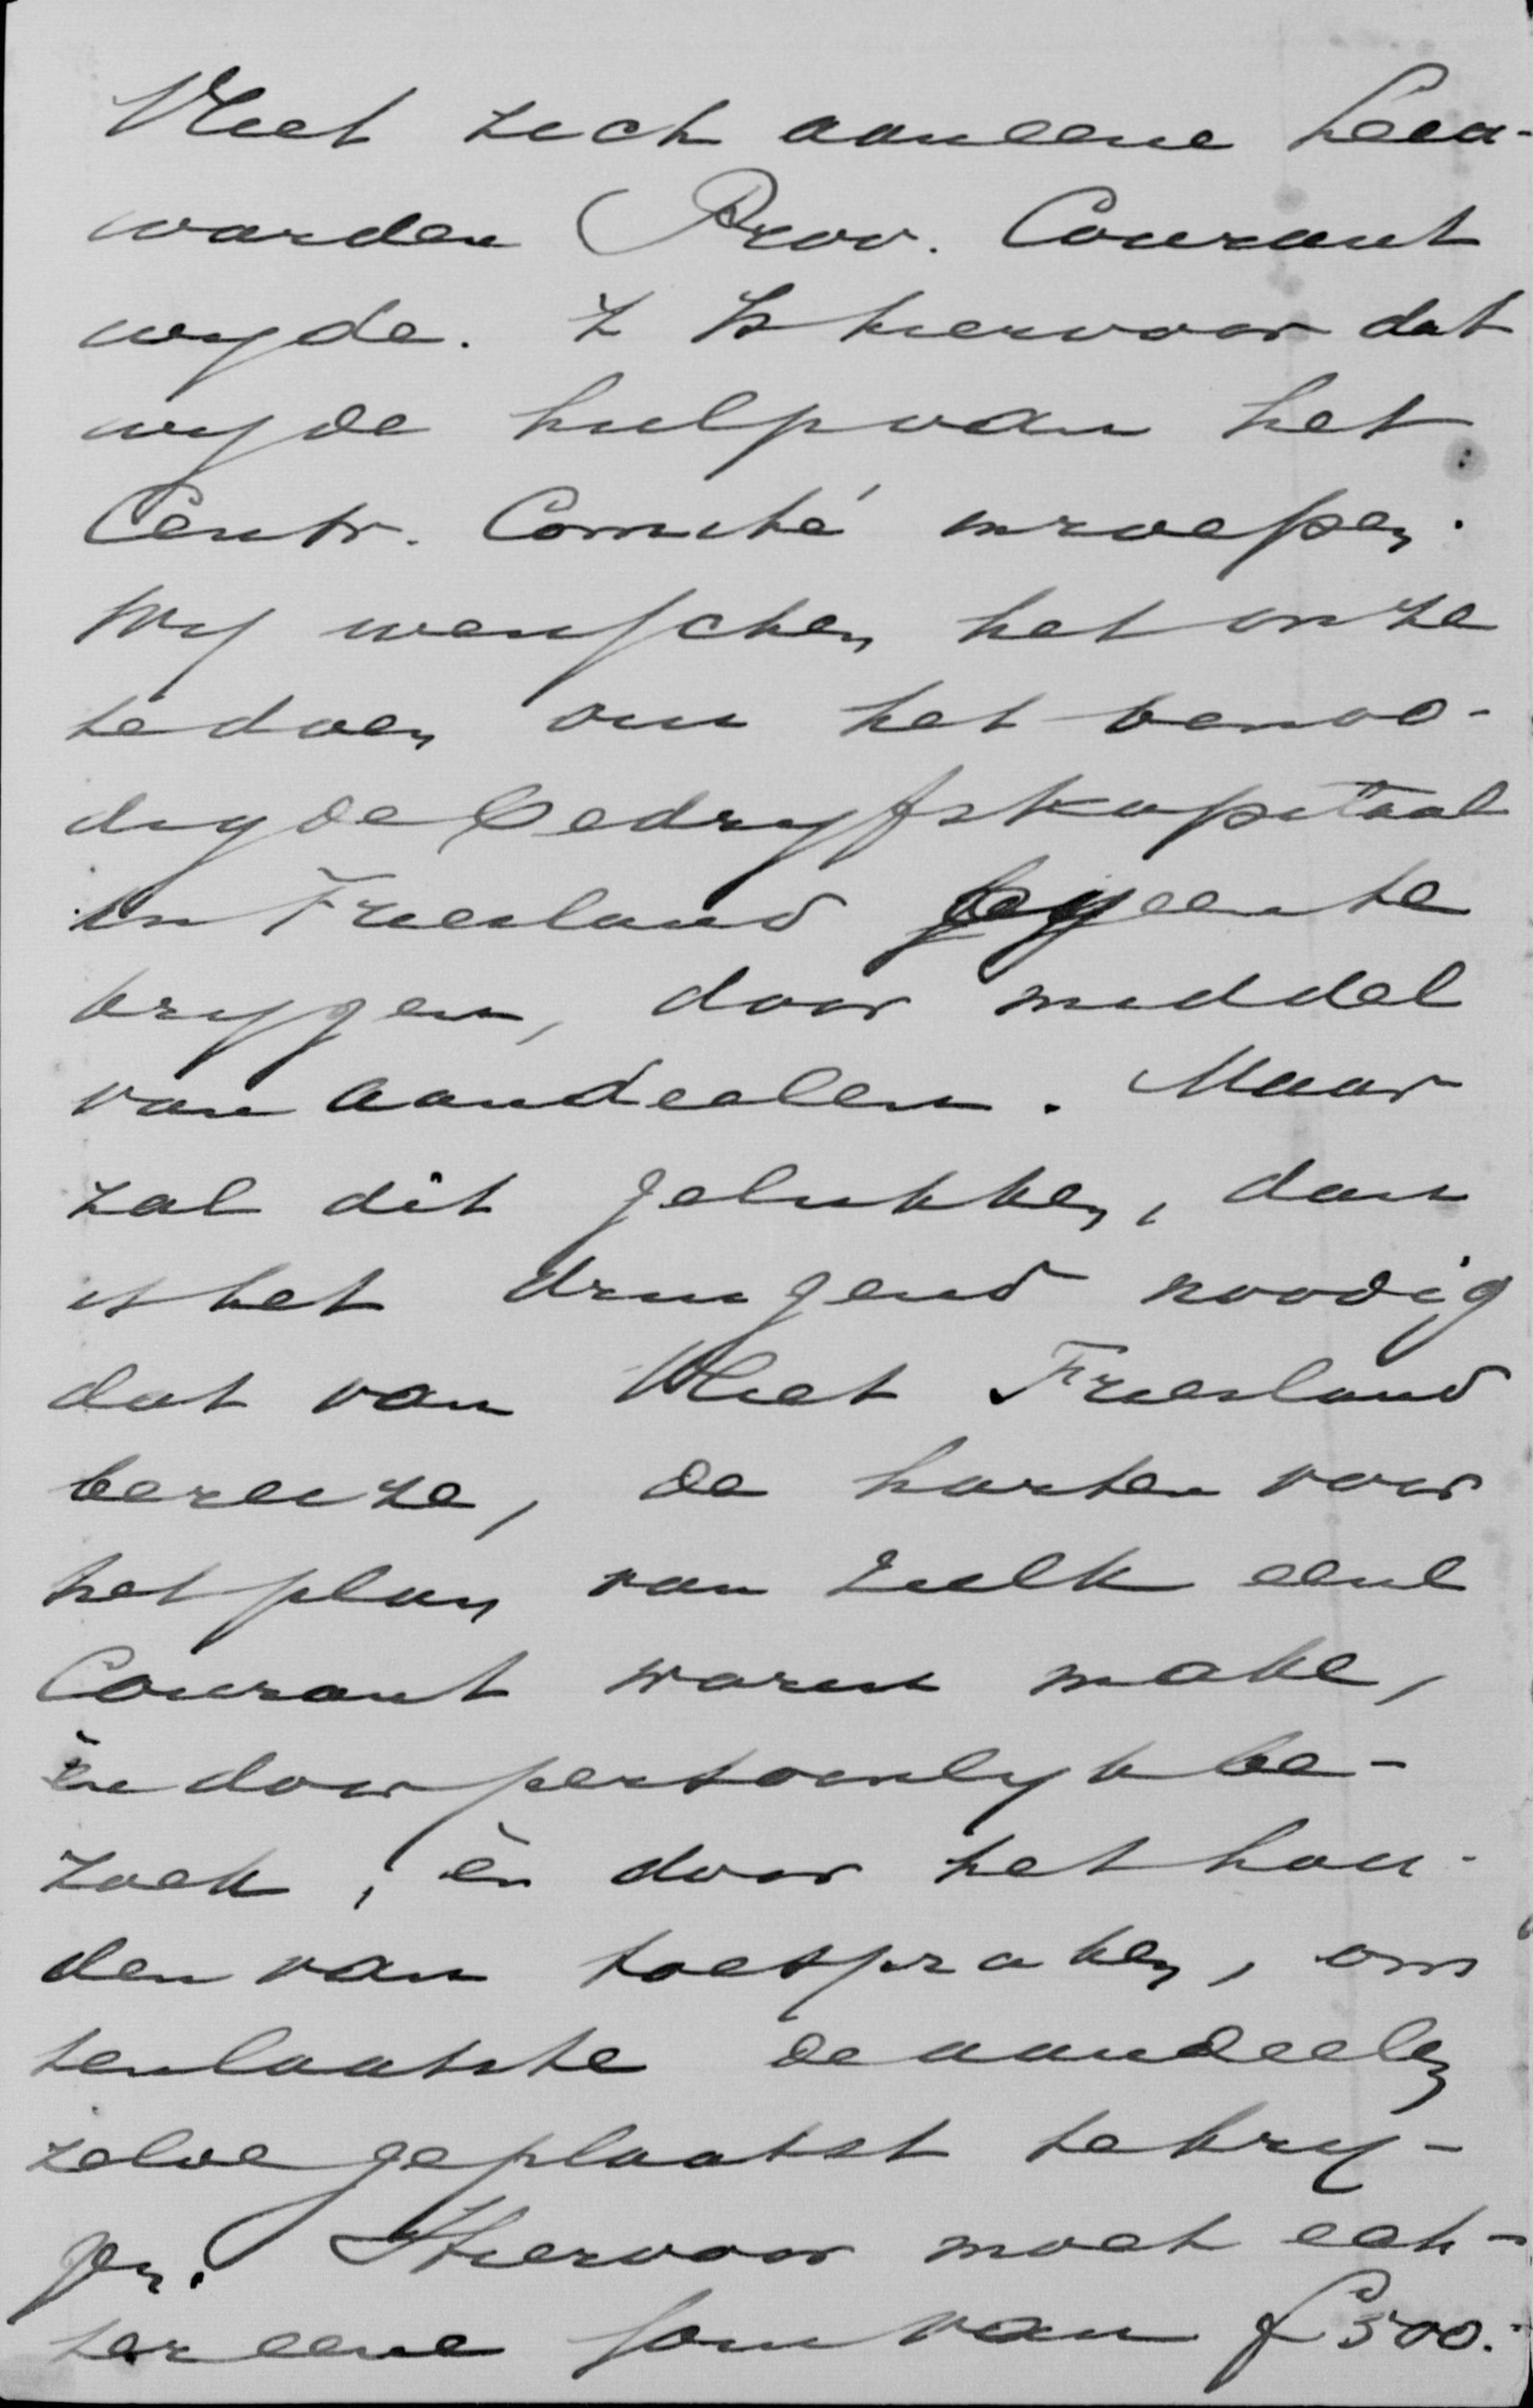 Vliet zich aan eene Leeu-
warden Prov. Courant
wyde. 't Is hiervoor dat
wy de hulp van het
Centr. Comité inroepen.
Wy wenschen het onze
te doen om het benoo-
digde bedryfskapitaal
in Friesland byeen te
brygen, door middel
van aandeelen. Maar
zal dit gelukken, dan
is het dringend noodig
dat van Vliet Friesland
bereize, de harten voor
het plan van zulk eene
Courant warm make,
èn door persoonlyk be-
zoek, èn door het hou-
den van toespraken, om
ten laatste de aandeelen
zelve geplaatst te kry-
gen. Hiervoor moet ech-
ter eene som van f 500.-